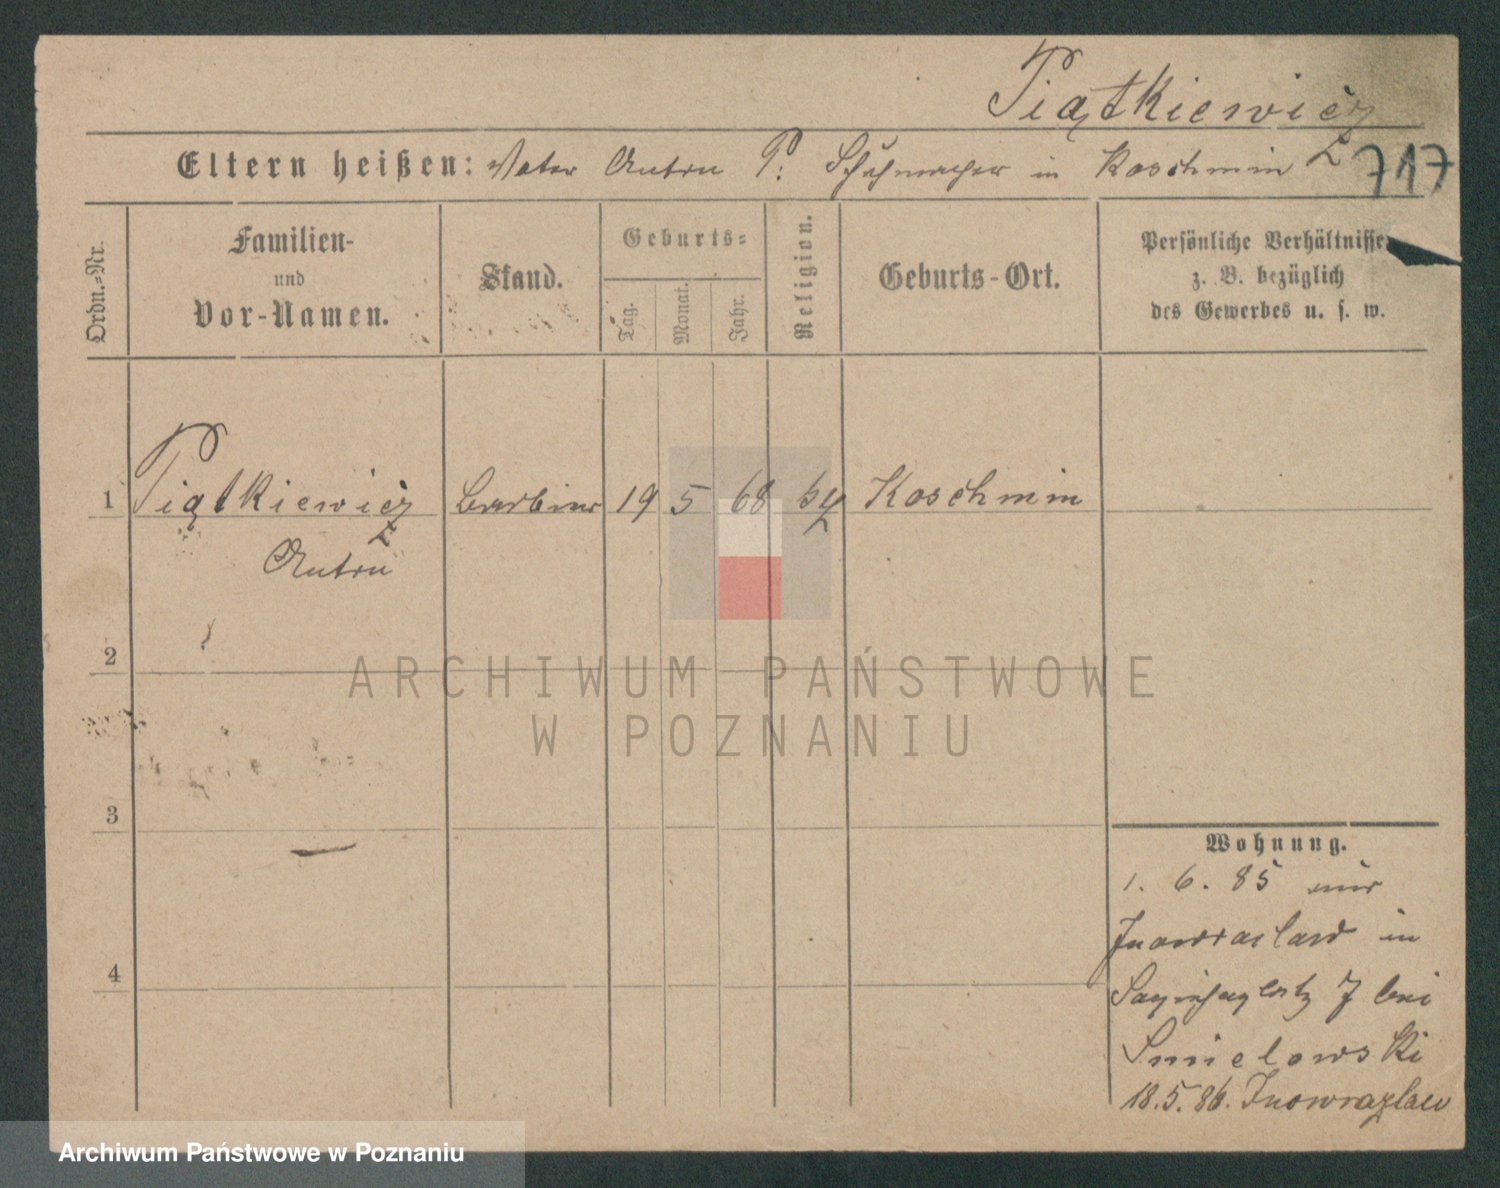 Piątkiewicz
Eltern heißen: Vater Anton P. Schuhmacher in Koschmin
717
Ordn.-Nr.
Familien-
und
Vor-Namen.
Stand.
Geburts-
Tag.
Monat.
Jahr.
Religion.
Geburts-Ort.
Persönliche Verhältnisse
z. B. bezüglich
des Gewerbes u. s. w.
1 Piątkiewicz Barbier 19 5 68 Koschmin
Anton
2
3
4
Wohnung.
1. 6. 85 aus
Inowraclaw in
Sapiehaplatz 7 bei
Smielowski
18.5.86. Inowrazlaw
ARCHIWUM PAŃSTWOWE
W POZNANIU
Archiwum Państwowe w Poznaniu